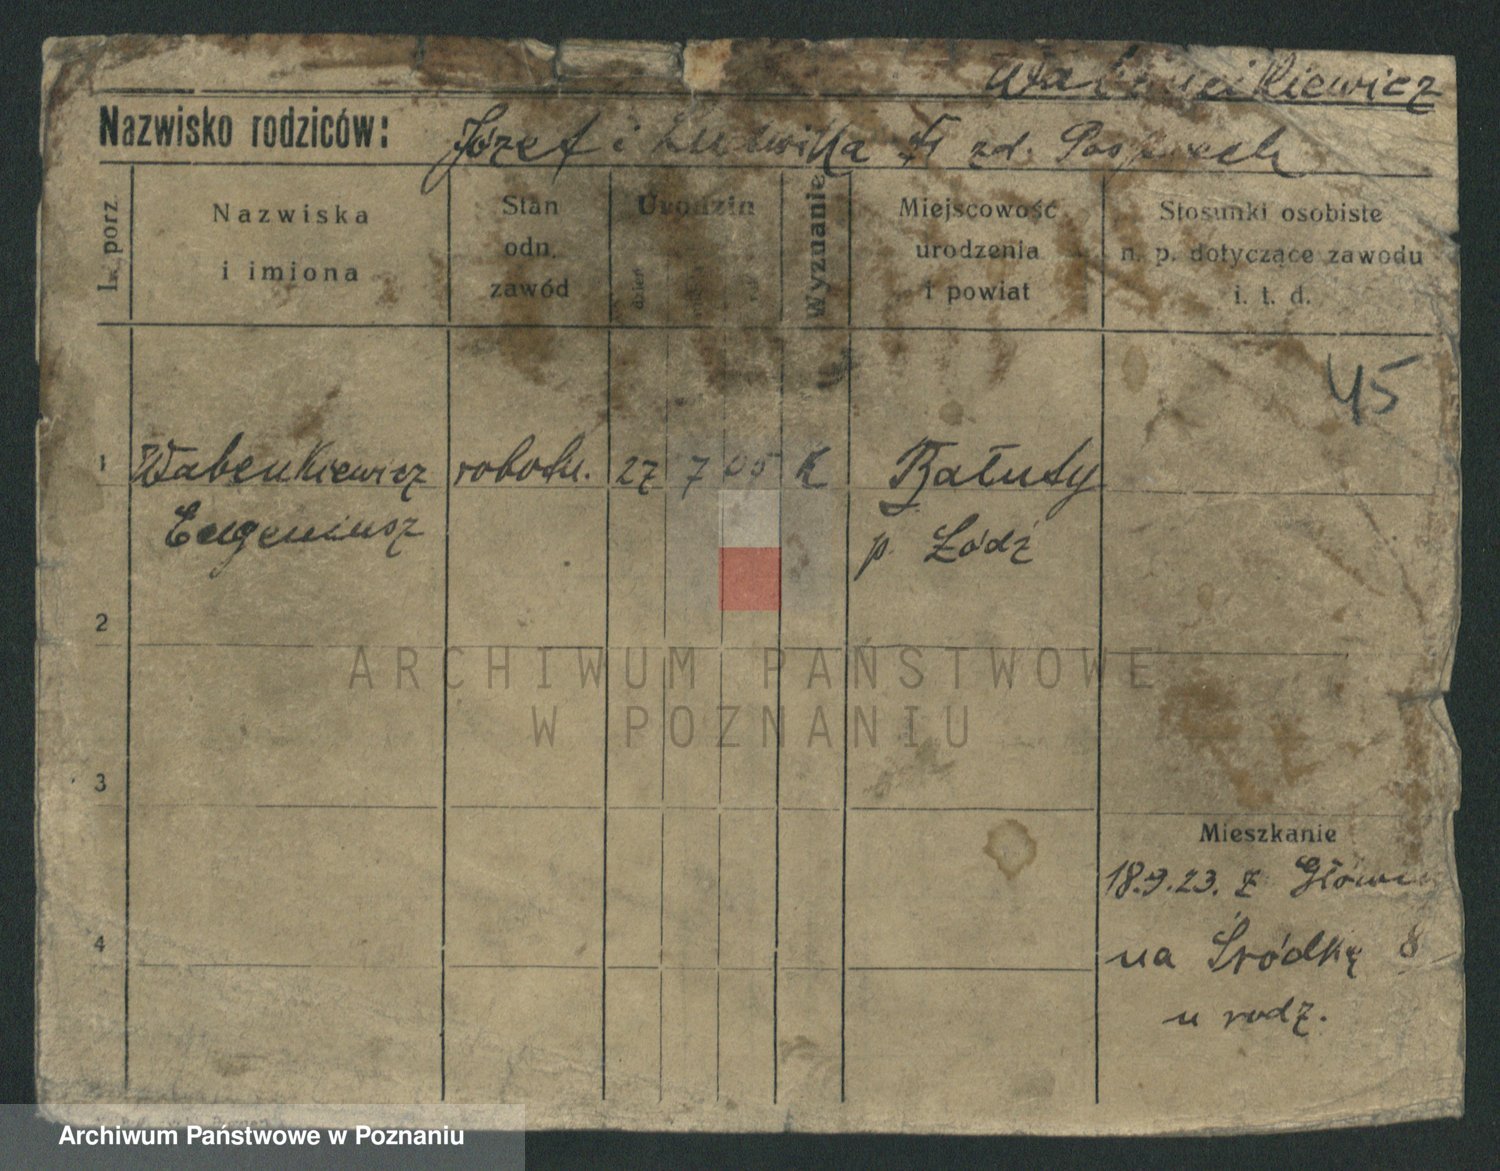 Nazwisko rodziców: Józef i Ludwika zd.
L. porz.
Nazwiska
i imiona
Stan
odn.
zawód
Urodzin
dzień
Wyznanie
Miejscowość
urodzenia
i powiat
Stosunki osobiste
n. p. dotyczące zawodu
i. t. d.
45
1 Wabenkiewicz robotn. 27 7 05 K Bałuty
Eugeniusz p. Łódź
2
ARCHIWUM PAŃSTWOWE
W POZNANIU
3
Mieszkanie
18.9.23. z
4
na Śródkę 8
u rodz.
Archiwum Państwowe w Poznaniu